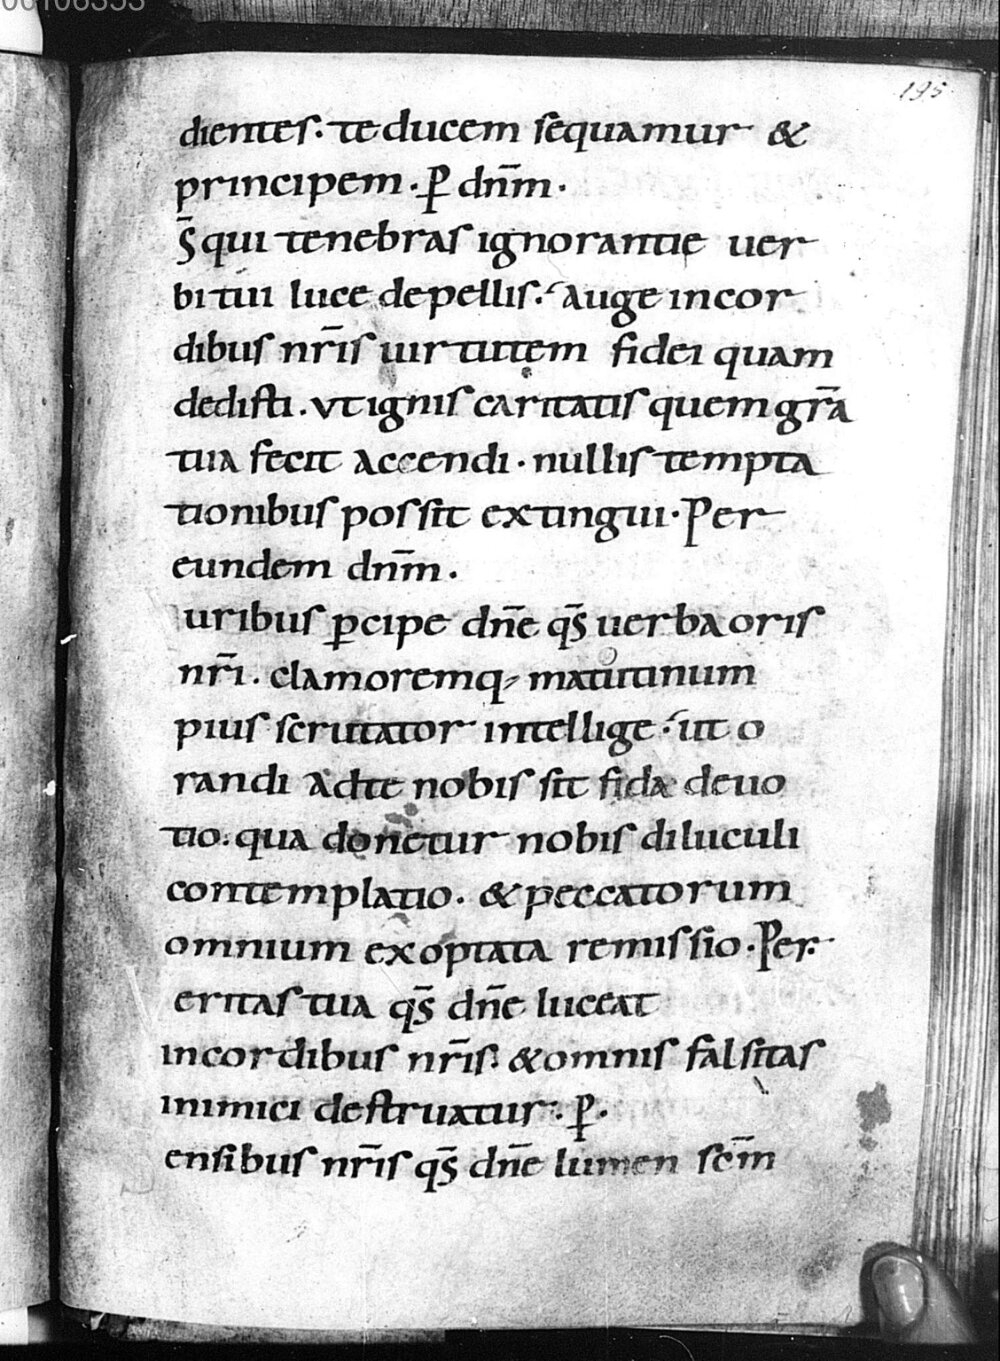 00106353
195
dientes. te ducem sequamur &
principem. P̄ dn̄m.
S̄ qui tenebras ignorantie uer
bi tui luce depellis. auge in cor
dibus nr̄is uirtutem fidei quam
dedisti. vt ignis caritatis quem gr̄a
tua fecit accendi. nullis tempta
tionibus possit extingui. Per
eundem dn̄m.
uribus ꝑcipe dn̄e qs̄ uerba oris
nr̄i. clamoremq; matutinum
pius scrutator intellige. ut o
randi ad te nobis sit fida deuo
tio. qua donetur nobis diluculi
contemplatio. & peccatorum
omnium exoptata remissio. Per.
eritas tua qs̄ dn̄e luceat
in cordibus nr̄is. & omnis falsitas
inimici destruatur. P̄.
ensibus nr̄is qs̄ dn̄e lumen sc̄m